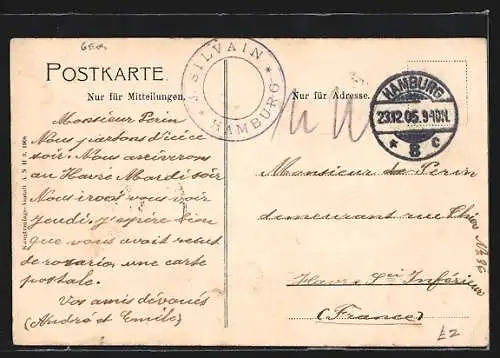 POSTKARTE.
Nur für Mitteilungen.
J. SILVAIN
* HAMBURG *
Nur für Adresse.
HAMBURG
23.12.05. 9-10N.
* 8 c
Monsieur Perin
Nous partons d'ici ce
soir. Nous arriverons
au Havre Mardi soir
Nous irons vous voir
Jeudi, j'espère bien
que vous avait reçut
de rosario, une carte
postale.
Vos amis dévoués
(André et Emile)
Monsieur de Perin
demeurant rue Thiers No 36
Havre Sei Inférieure
(France)
£2